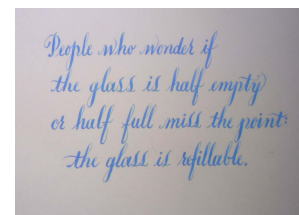 People who wonder if
the glass is half empty
or half full miss the point:
the glass is refillable.